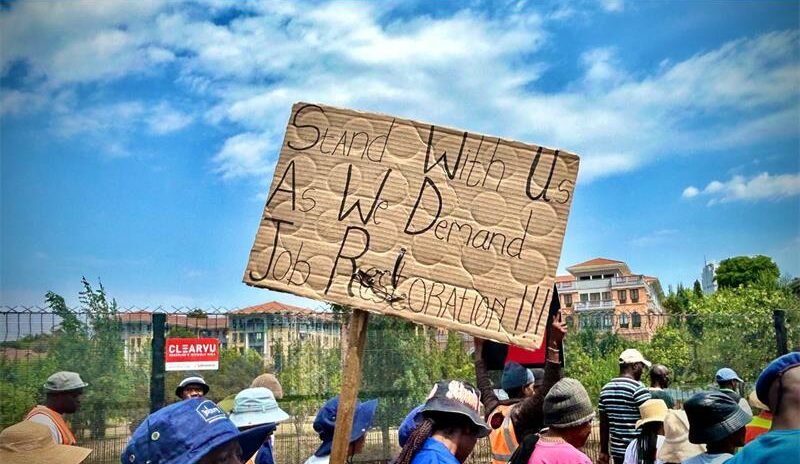 Stand With Us
As We Demand
Job
CLEARVU